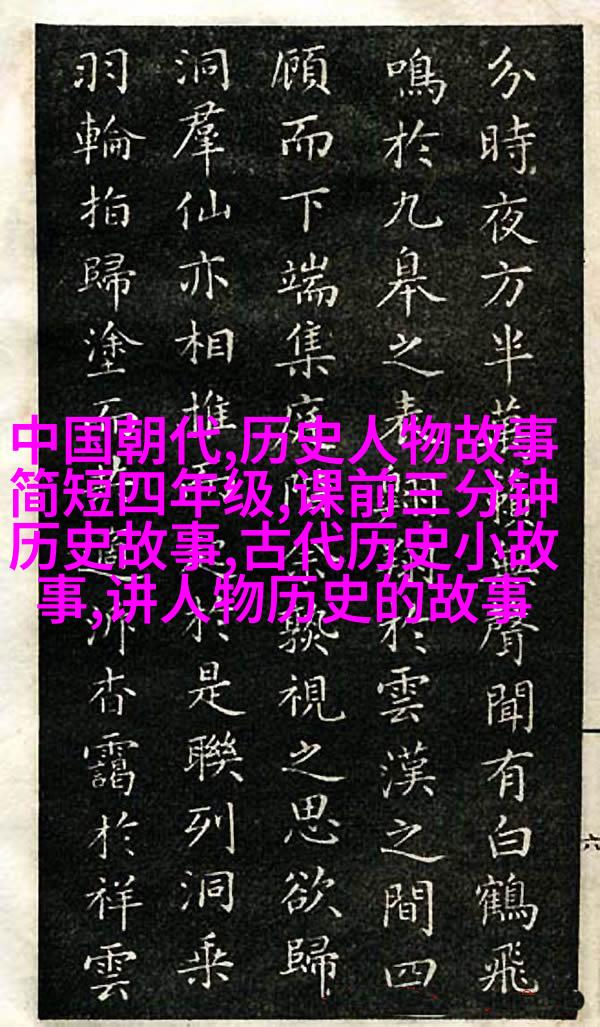 中国朝代,历史人物故事
简短四年级,课前三分钟
历史故事,古代历史小故
事,讲人物历史的故事
分時夜方半聲聞有白鶴飛
鳴於九皋之表翔於雲漢之間四
顧而下端集庭視之思欲歸
洞羣仙亦相推於是聯列洞乘
羽輪指歸塗而杳靄於祥雲
六